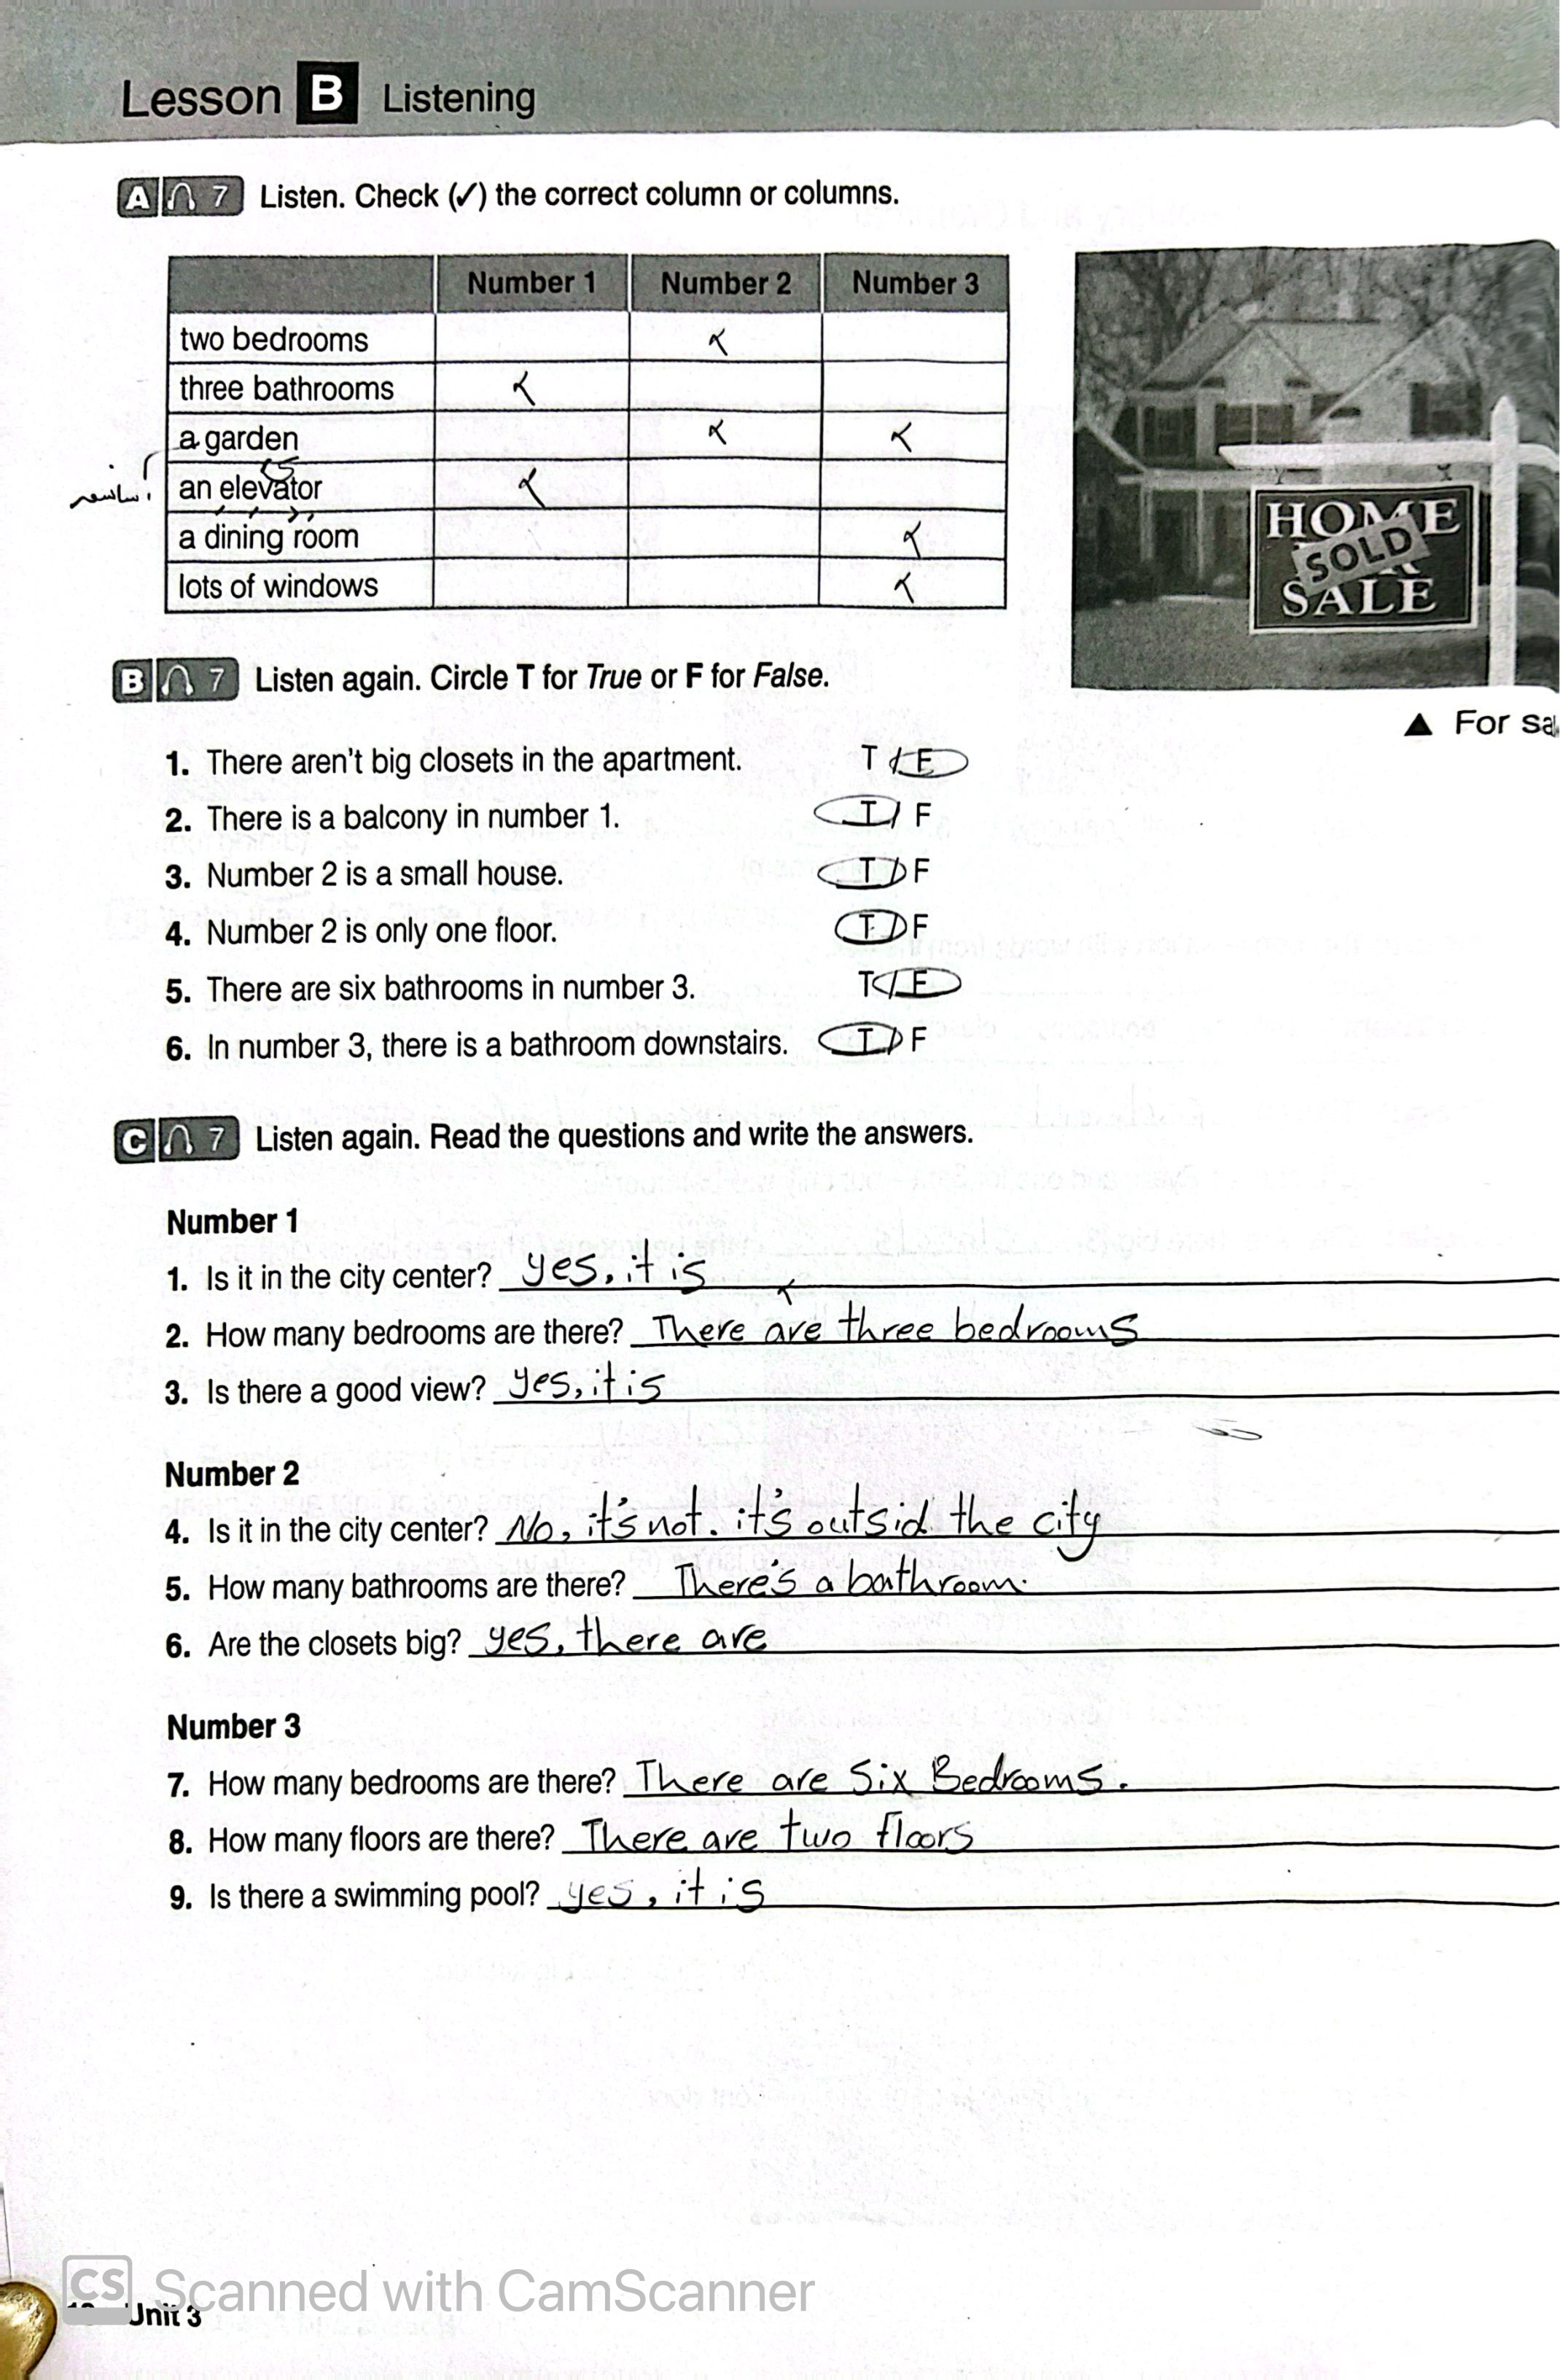 Lesson B Listening
A 7 Listen. Check (✓) the correct column or columns.
Number 1 Number 2 Number 3
two bedrooms ✓
three bathrooms ✓
a garden ✓ ✓
آسانسور an elevator ✓
a dining room ✓
lots of windows ✓
HOME
SOLD
SALE
For sa
B 7 Listen again. Circle T for True or F for False.
1. There aren't big closets in the apartment. T / F
2. There is a balcony in number 1. T / F
3. Number 2 is a small house. T / F
4. Number 2 is only one floor. T / F
5. There are six bathrooms in number 3. T / F
6. In number 3, there is a bathroom downstairs. T / F
C 7 Listen again. Read the questions and write the answers.
Number 1
1. Is it in the city center? yes, it is
2. How many bedrooms are there? There are three bedrooms
3. Is there a good view? yes, it is
Number 2
4. Is it in the city center? No, it's not. it's outsid the city
5. How many bathrooms are there? There's a bathroom.
6. Are the closets big? yes, there are
Number 3
7. How many bedrooms are there? There are six Bedrooms.
8. How many floors are there? There are two floors
9. Is there a swimming pool? yes, it is
CS Scanned with CamScanner
Unit 3